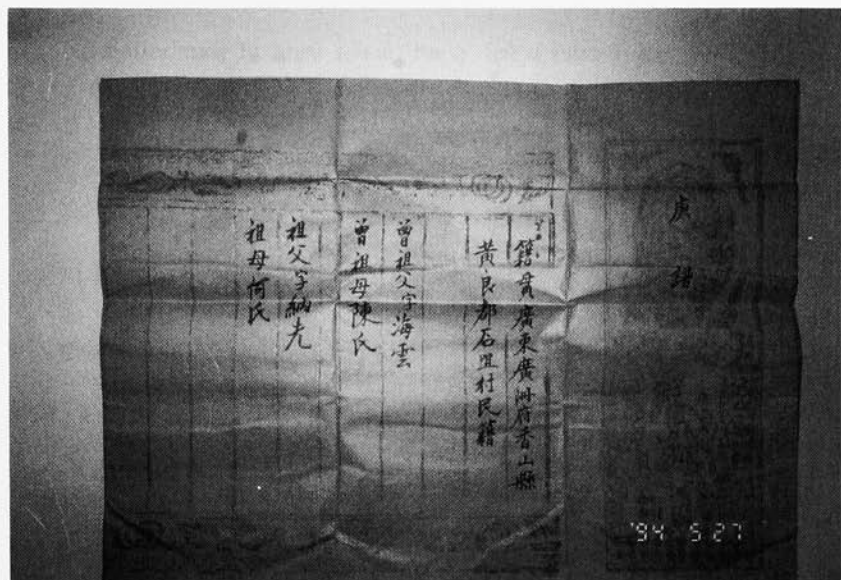 庚譜
籍貫廣東廣洲府香山縣
黃良都石咀村民籍
曾祖父字海雲
曾祖母陳氏
祖父字納光
祖母何氏
'94 5 27